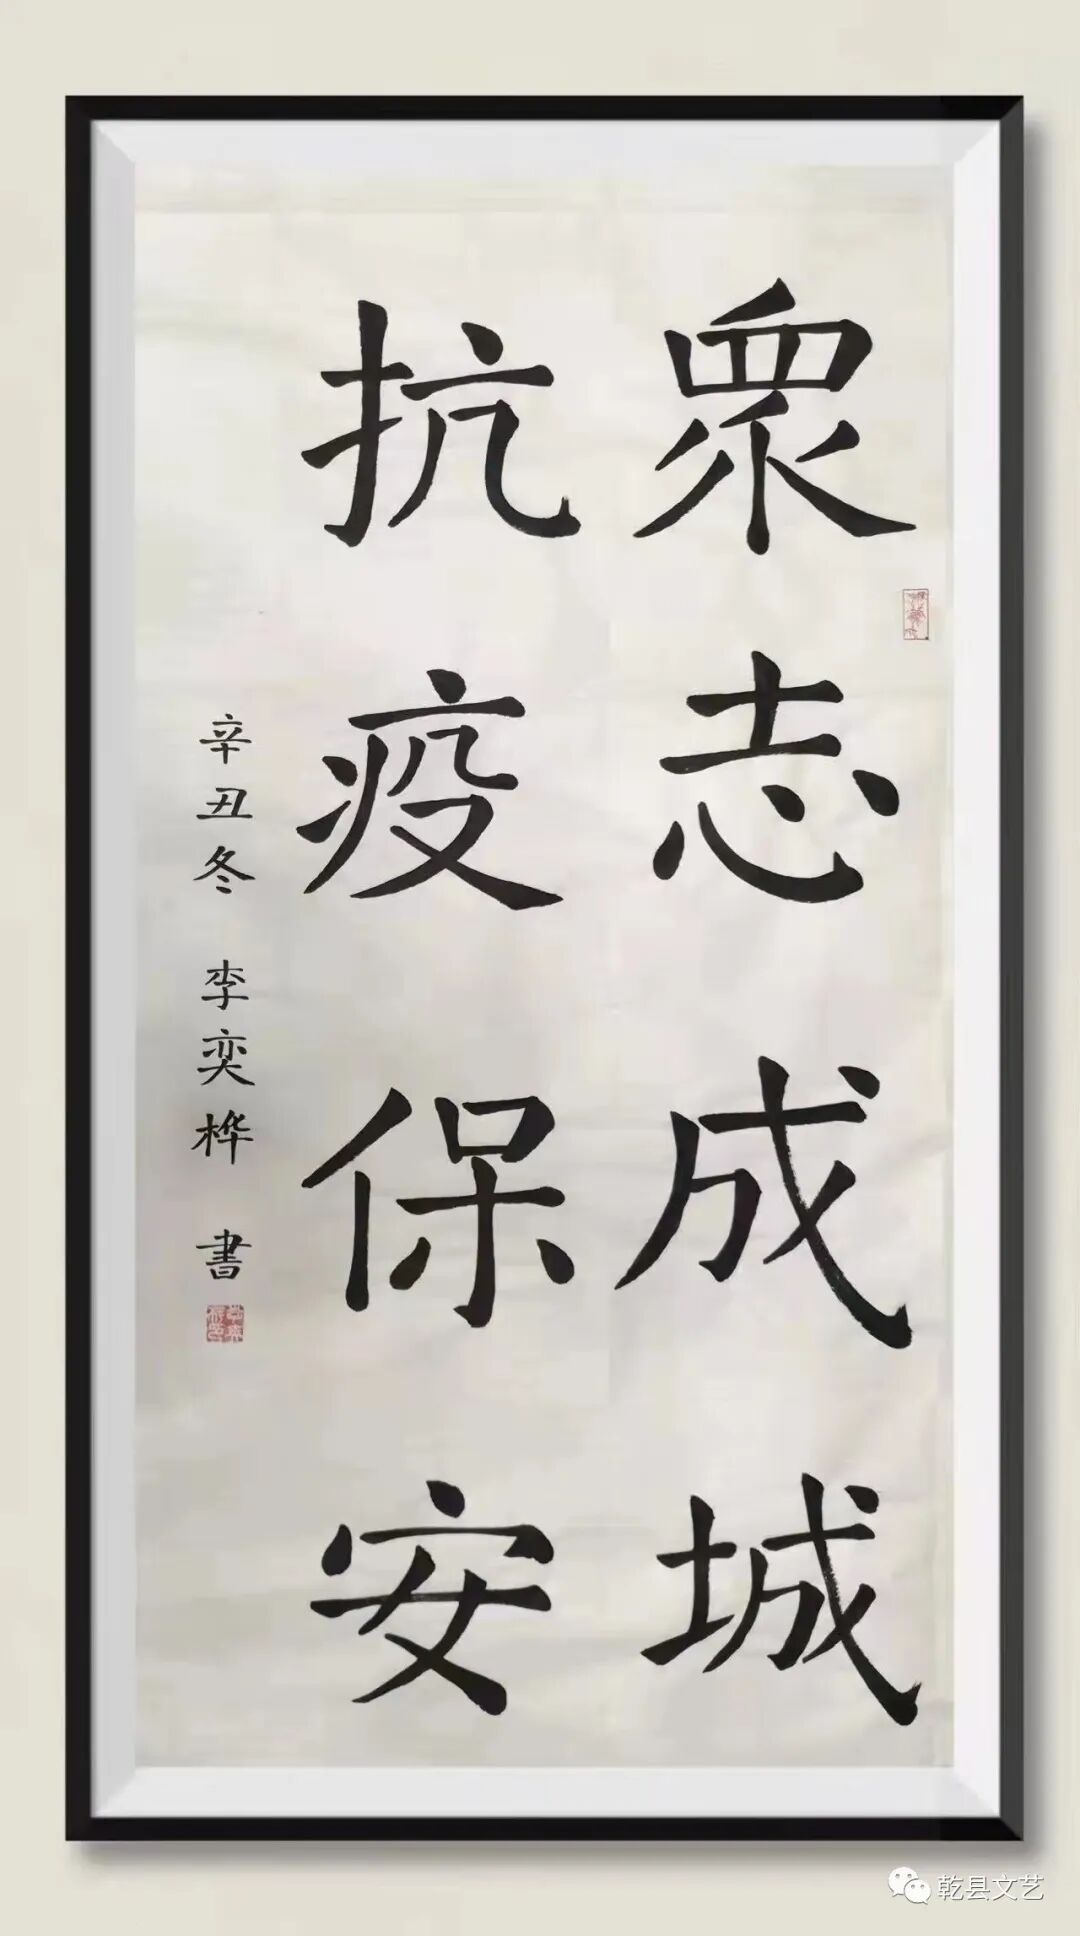 眾志成城
抗疫保安
辛丑冬 李奕桦 書
乾县文艺